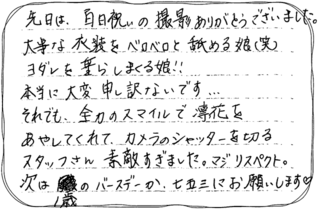 先日は、百日祝いの撮影ありがとうございました。
大事な衣装をベロベロと舐める娘(笑)
ヨダレを垂らしまくる娘!!
本当に大変申し訳ないです…
それでも、全力のスマイルで澪花を
あやしてくれて、カメラのシャッターを切る
スタッフさん素敵すぎました。マジリスペクト。
次は1歳のバースデーか、七五三にお願いします♡